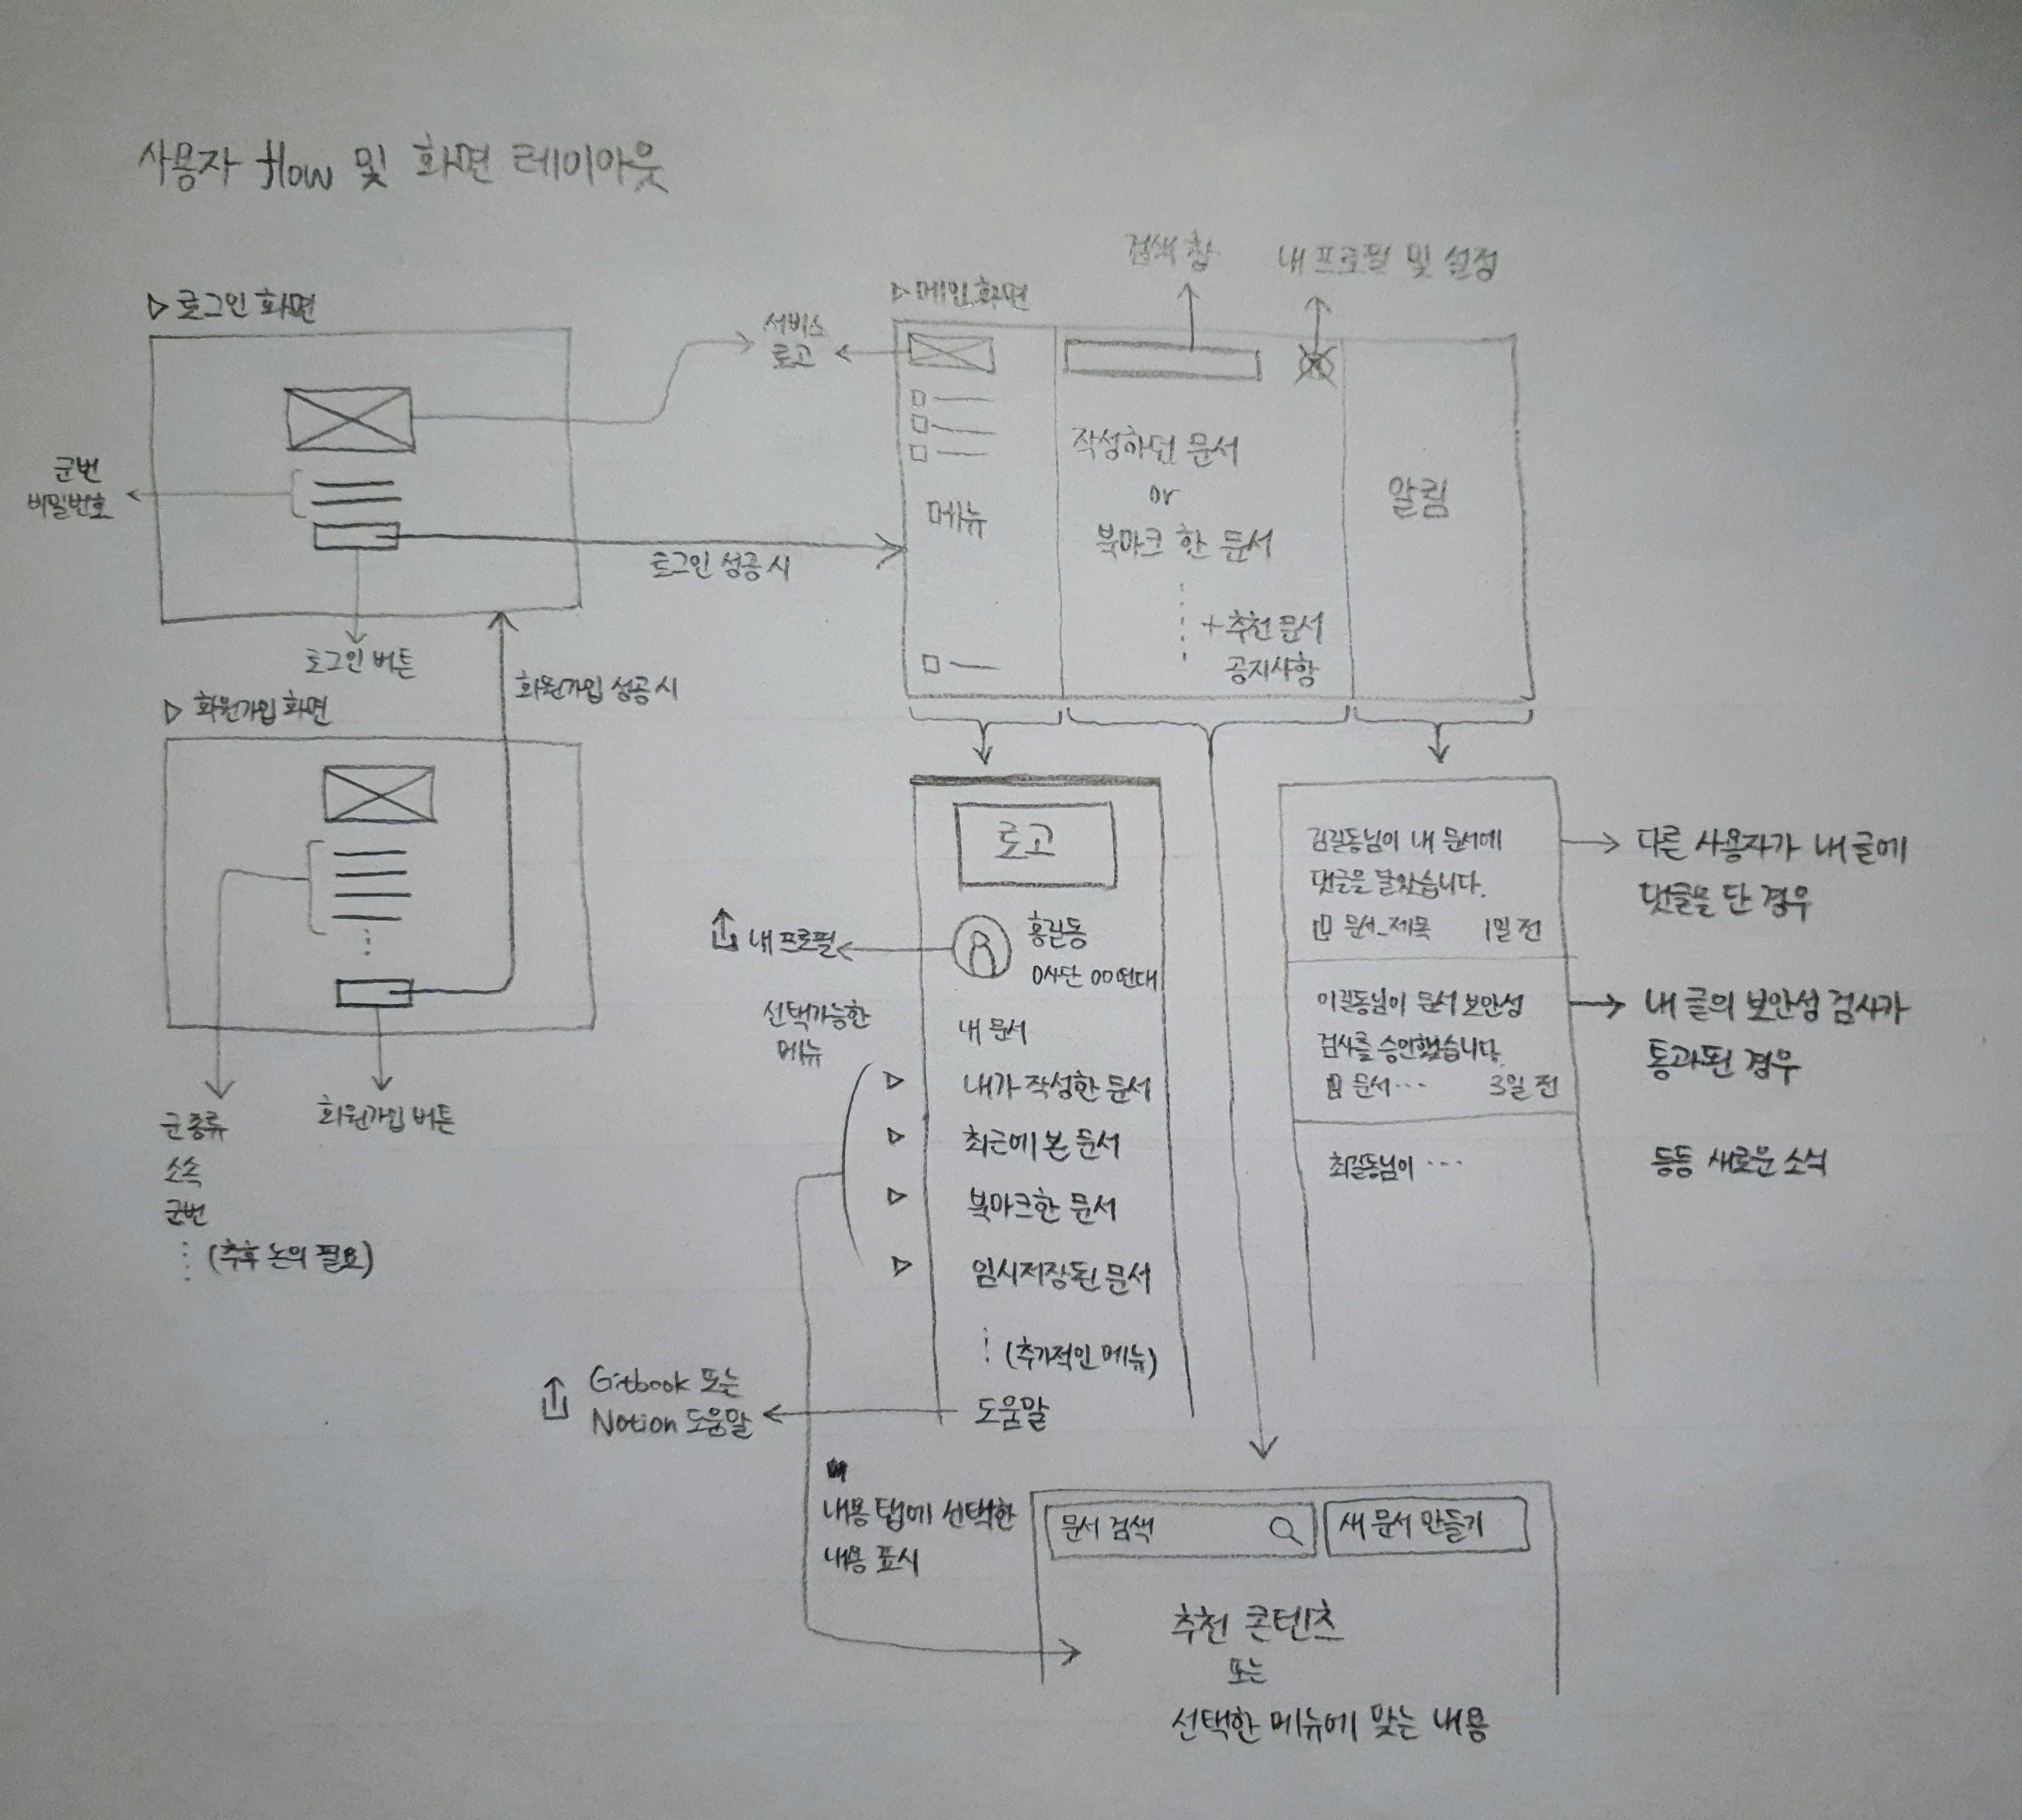 사용자 flow 및 화면 레이아웃
▷ 로그인 화면
군번
비밀번호
로그인 버튼
서비스
로고
로그인 성공 시
▷ 회원가입 화면
회원가입 성공 시
군종류
소속
군번
⋮ (추후 논의 필요)
회원가입 버튼
▷ 메인화면
검색 창
내 프로필 및 설정
메뉴
작성하던 문서
or
북마크 한 문서
+ 추천 문서
공지사항
알림
로고
내 프로필
홍길동
0사단 00연대
선택가능한
메뉴
내 문서
▷ 내가 작성한 문서
▷ 최근에 본 문서
▷ 북마크한 문서
▷ 임시저장된 문서
⋮ (추가적인 메뉴)
도움말
Gitbook 또는
Notion 도움말
내용 탭에 선택한
내용 표시
김길동님이 내 문서에
댓글을 달았습니다.
문서_제목 1일 전
다른 사용자가 내 글에
댓글을 단 경우
이길동님이 문서 보안성
검사를 승인했습니다.
문서… 3일 전
내 글의 보안성 검사가
통과된 경우
최길동님이 …
등등 새로운 소식
문서 검색
새 문서 만들기
추천 콘텐츠
또는
선택한 메뉴에 맞는 내용